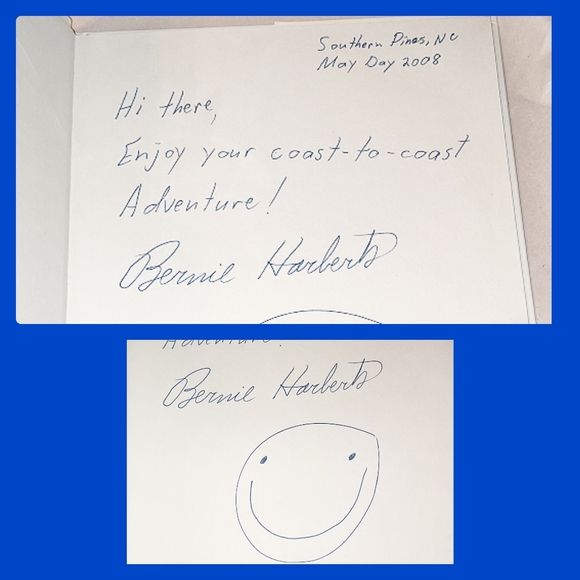 Southern Pines, NC
May Day 2008
Hi there,
Enjoy your coast-to-coast
Adventure!
Bernie Harberts
Adventure!
Bernie Harberts